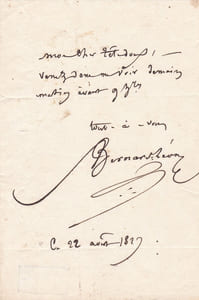 mon cher
venez donc me voir demain
matin avant 9 h
tout - à - vous
Bernard Léon
C. 22 août 182